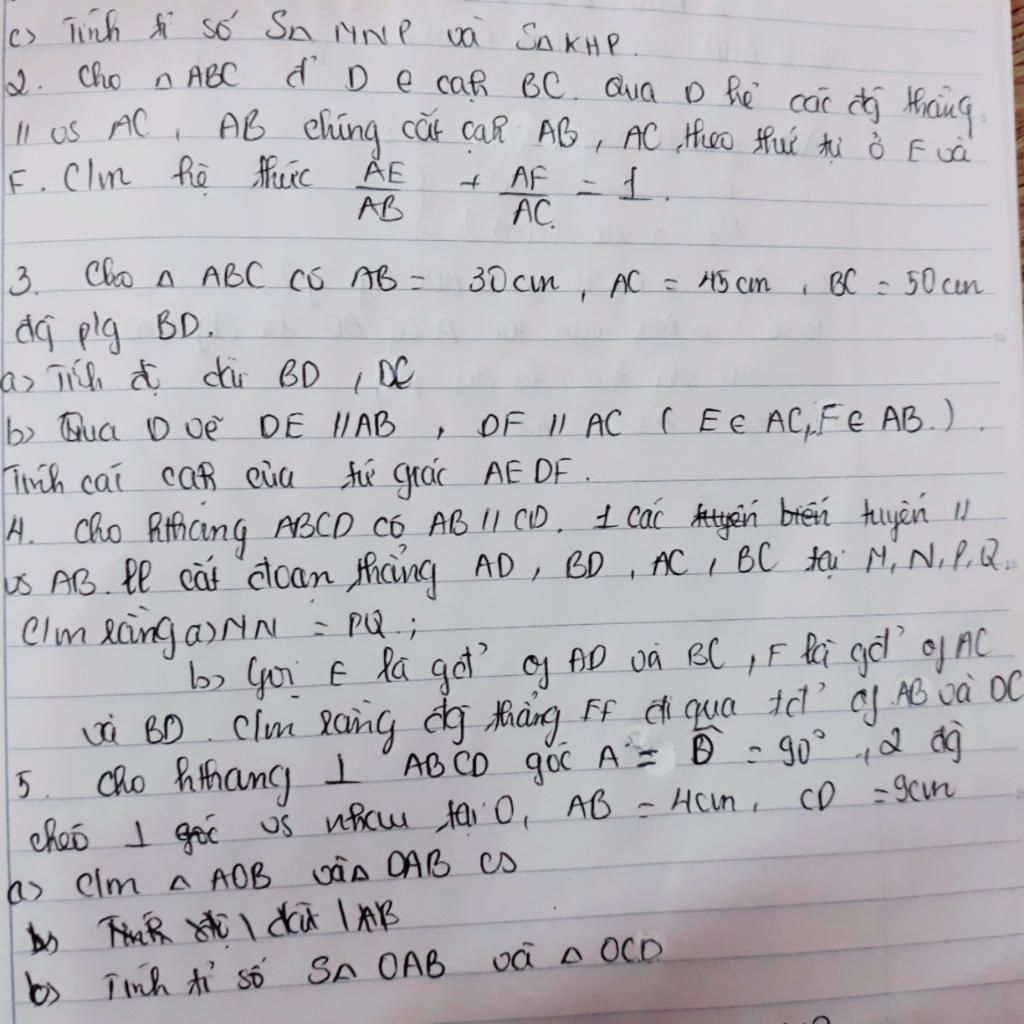 c) Tính tỉ số S∆ MNP và S∆ KHP.
2. Cho ∆ ABC đ' D e cạh BC. Qua D kẻ các đg thẳng
// vs AC, AB chúng cắt cạh AB, AC theo thứ tự ở E và
F. C/m hệ thức AE/AB + AF/AC = 1.
3. Cho ∆ ABC có AB = 30cm, AC = 45cm, BC = 50cm
đg p/g BD.
a) Tính độ dài BD, DC
b) Qua D vẽ DE // AB, DF // AC (E ∈ AC, F ∈ AB.).
Tính cái cạh của tứ giác AEDF.
4. Cho hthang ABCD có AB // CD. 1 các tuyến biến tuyến //
vs AB. cắt đoạn thẳng AD, BD, AC, BC tại M, N, P, Q.
C/m rằng a) MN = PQ.;
b) Gọi E là gđ' of AD và BC, F là gđ' of AC
và BD. C/m rằng đg thẳng EF đi qua tđ' of AB và DC
5. Cho hthang ⊥ ABCD góc A = D̂ = 90°, 2 đg
chéo ⊥ góc vs nhau tại O, AB = 4cm, CD = 9cm
a) C/m ∆ AOB và ∆ DAB CS
b) Tính độ dài AB
b) Tính tỉ số S∆ OAB và ∆ OCD